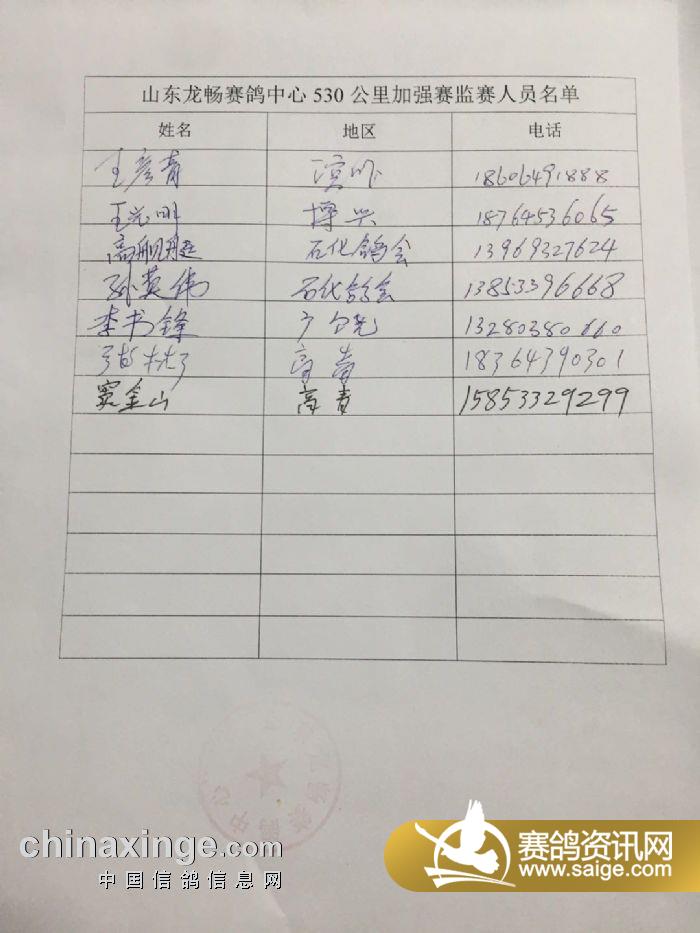 山东龙畅赛鸽中心530公里加强赛监赛人员名单
姓名 地区 电话
王彦青 18606491888
王光明 博兴 18764536065
石化鸽会 13969327624
孙英伟 石化鸽会 13853396668
李书锋 13280380660
高青 18364390301
窦金山 高青 15853329299
chinaxinge.com
中国信鸽信息网
赛鸽资讯网
www.saige.com